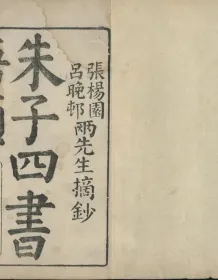 張楊園
呂晚邨
兩先生摘鈔
朱子四書
語類